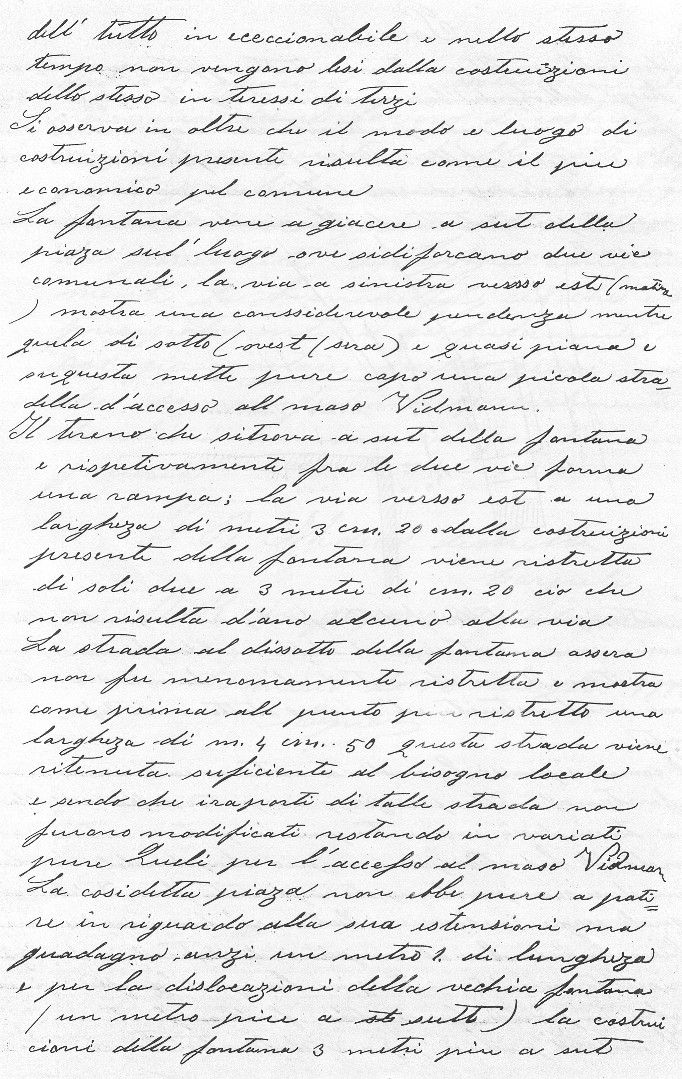 dell' tutto in ececcionabile e nello stesso
tempo non vengono lesi dalla costruizioni
dello stesso in teressi di terzi
Si osserva in oltre che il modo e luogo di
costruizioni presente risulta come il piu
economico pel comune
La fontana vene a giacere a sut della
piaza sul' luogo ove sidiforcano due vie
comunali, la via a sinistra versso est (matina
) mostra una conssiderevole pendenza mentre
quela di sotto (ovest (sera) e quasi piana e
suquesta mette pure capo una picola stra=
della d'accesso all maso Vidmann.
Il tereno che sitrova a sut della fontana
e rispetivamente fra le due vie forma
una rampa; la via versso est a una
largheza di metri 3 cm. 20 e dalla costruizioni
presente della fontana viene ristretta
di soli due a 3 metri di cm. 20 cio che
non risulta d'ano alcuno alla via
La strada al dissotto della fontana assera
non fu menomamente ristretta e mostra
come prima all punto piu ristretto una
largheza di m. 4 cm. 50 questa strada viene
ritenuta suficiente al bisogno locale
e sendo che iraporti di talle strada non
furono modificati restando in variati
pure Queli per l'accesso al maso Vidman
La cosidetta piaza non ebbe pure a pati=
re in riguardo alla sua estensioni ma
guadagno anzi un metro 1. di lungheza
e per la dislocazioni della vechia fontana
(un metro piu a st sutt) la costrui
cioni della fontana 3 metri piu a sut